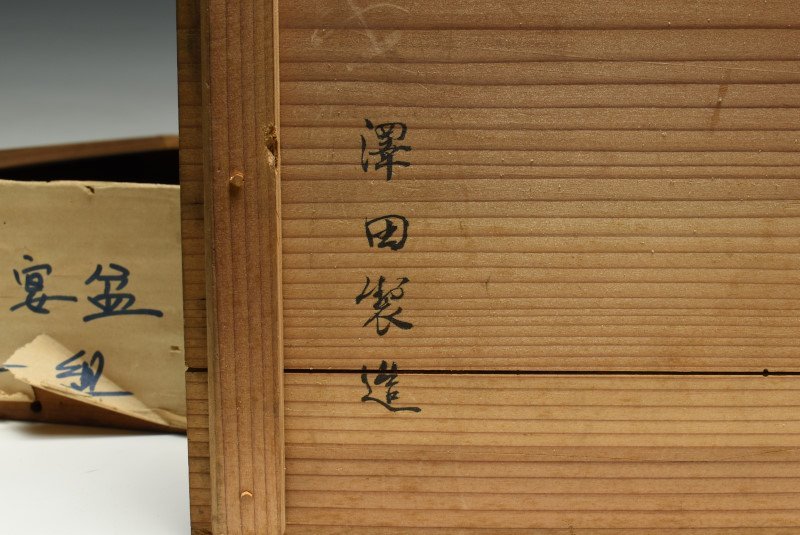 澤田製造
宴盆
一組